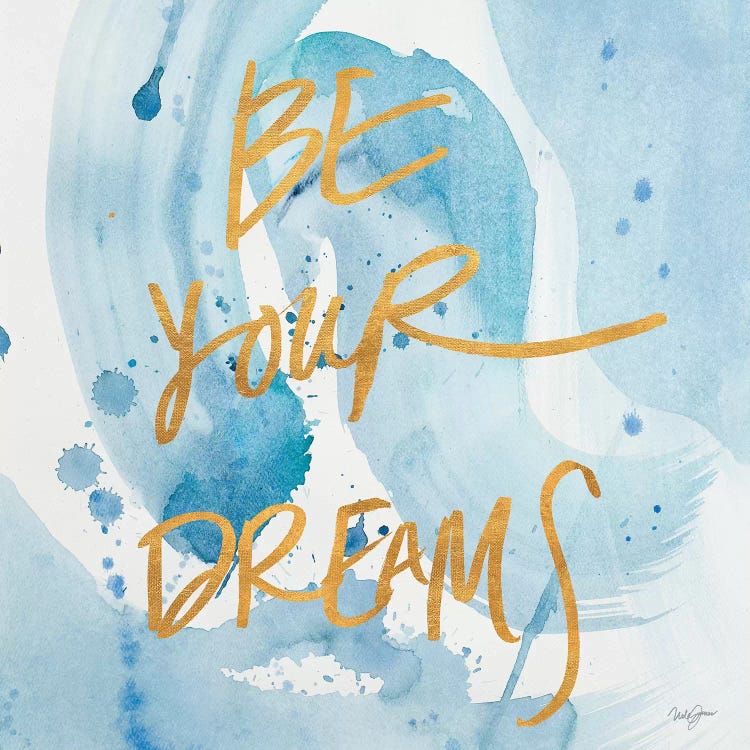 BE
YOUR
DREAMS